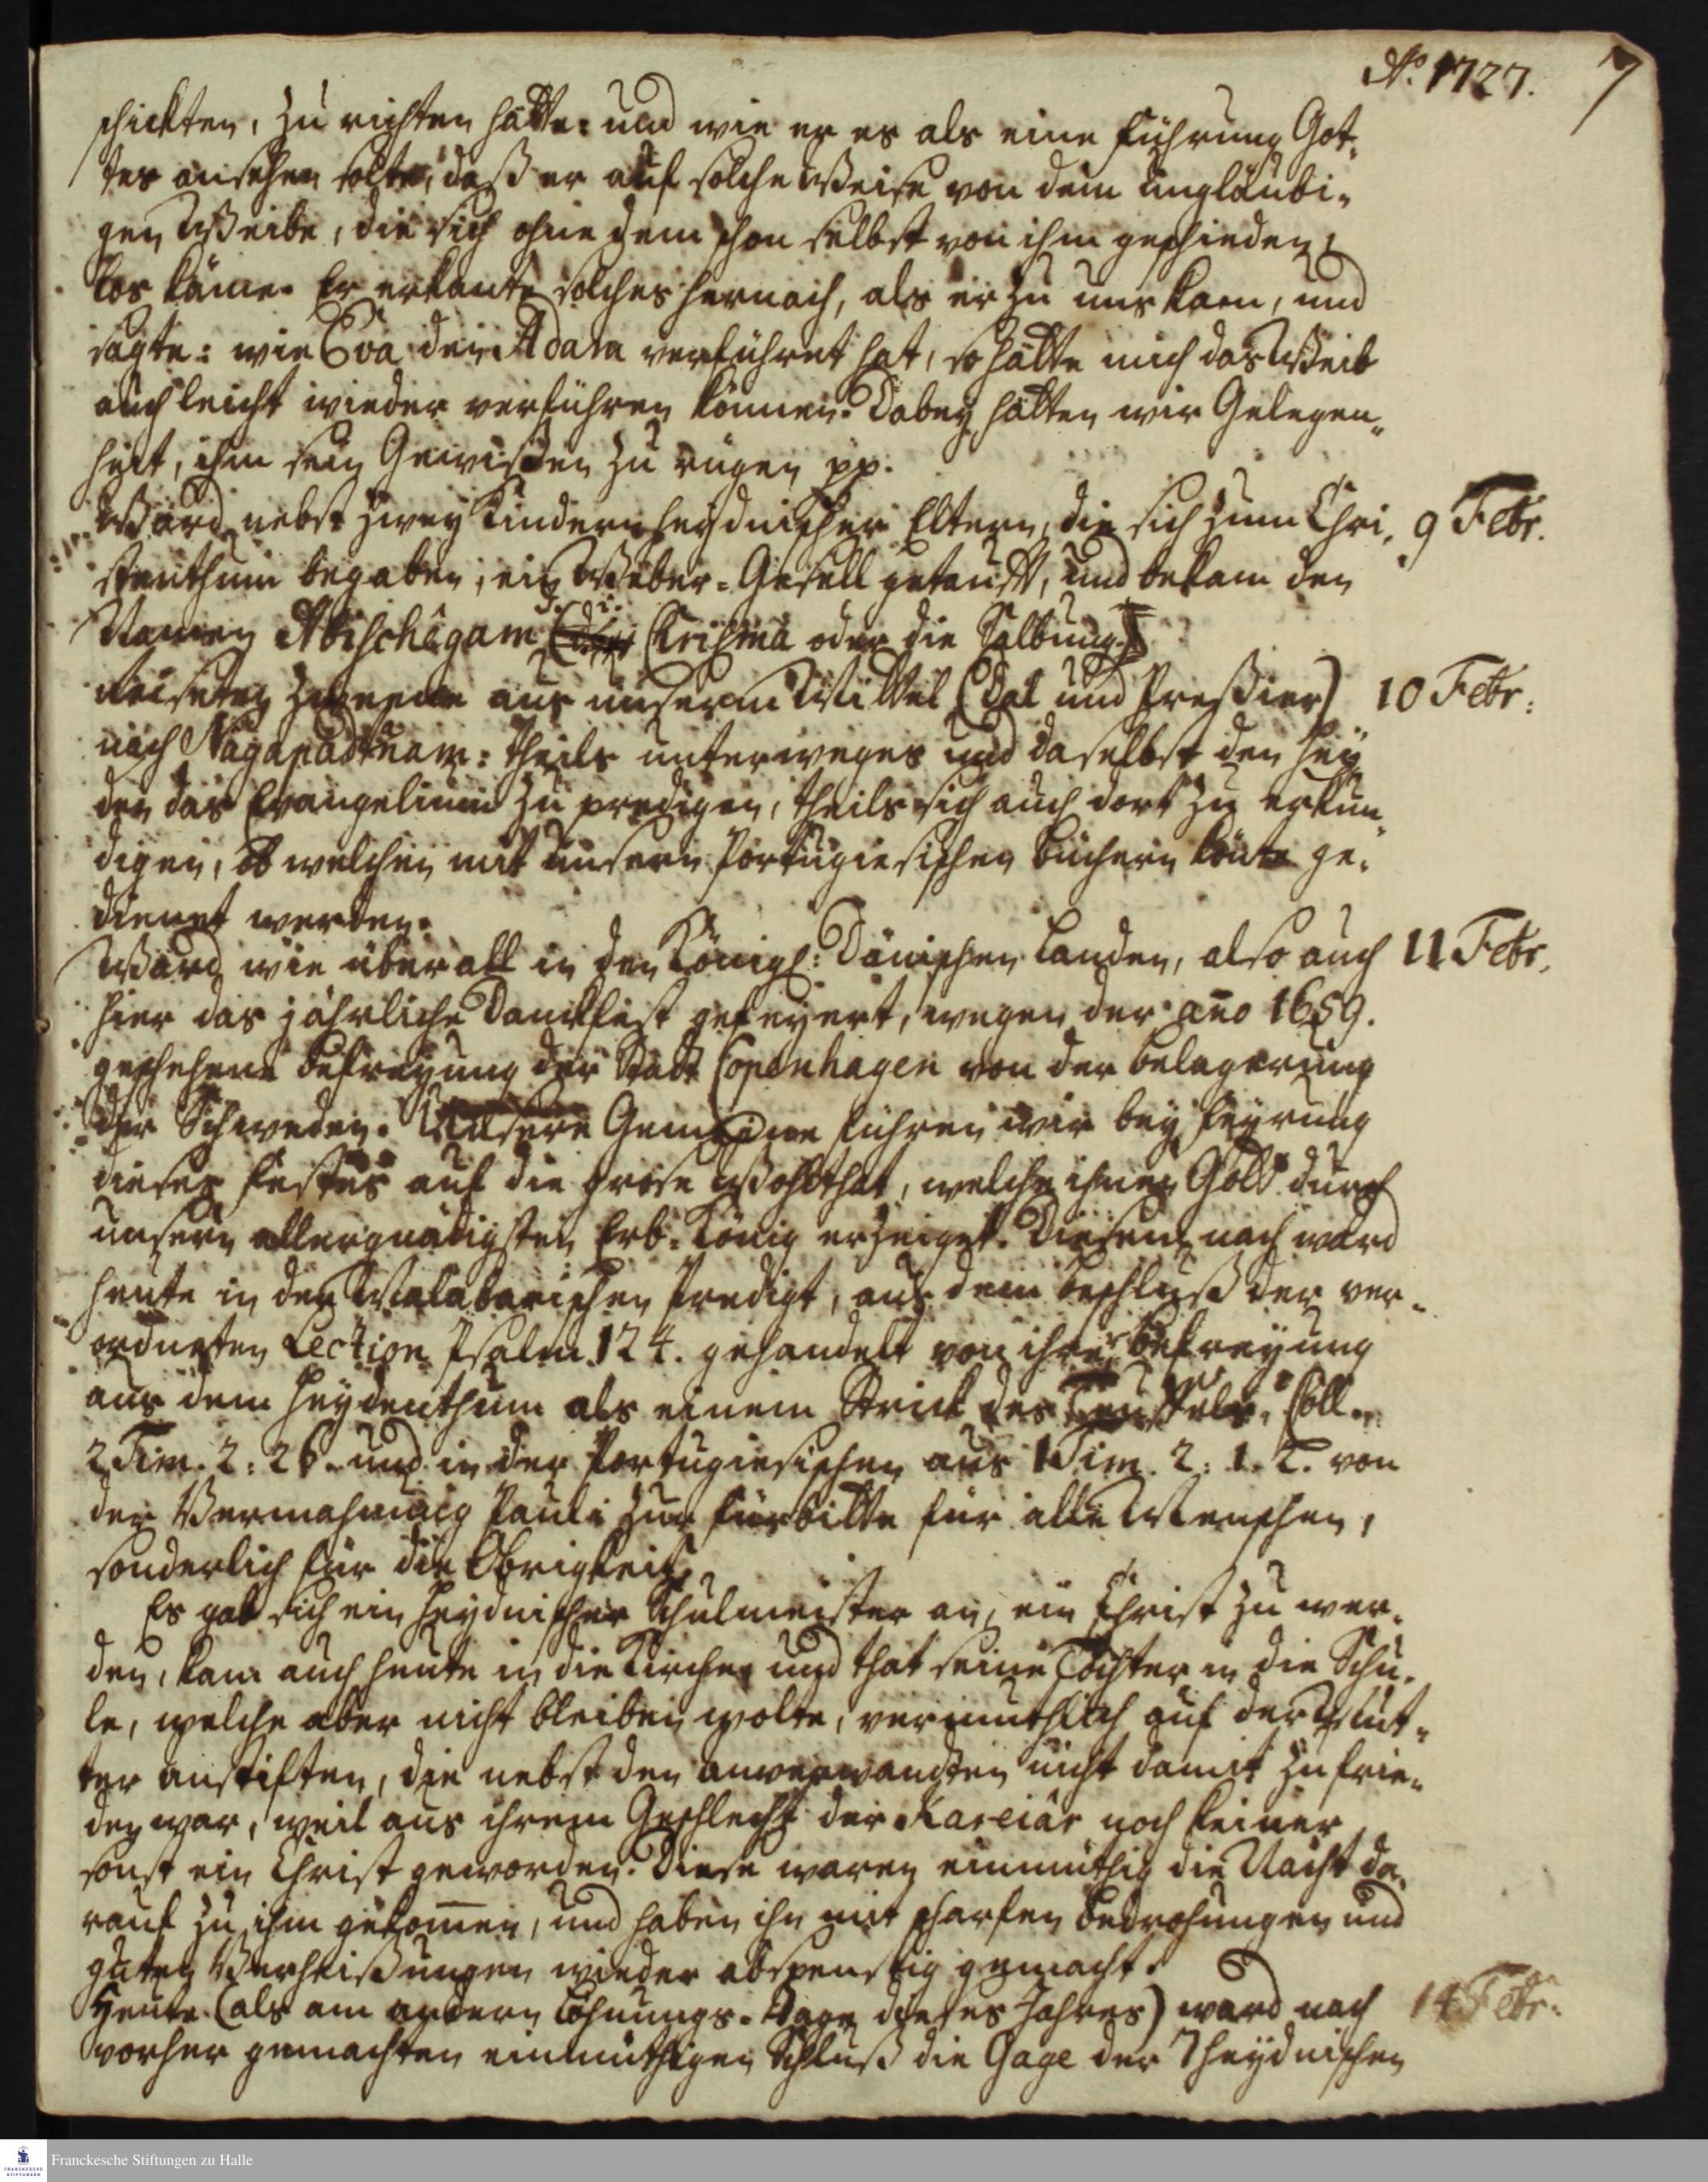 Aº. 1727. 7
schickten, zu richten hätte: und wie er es als eine Führung Got-
tes ansehen solte, daß er auf solche Weise von dem ungläubi-
gen Weibe, die sich ohne dem schon selbst von ihm geschieden,
los käme. Er erkante solches hernach, als er zu uns kam, und
sagte: wie Eva den Adam verführet hat, so hätte mich das Weib
auch leicht wieder verführen können. Dabey hatten wir Gelegen-
heit, ihm sein Gewißen zu rügen pp.
Ward nebst zwey Kindern heydnischer Eltern, die sich zum Chri- 9 Febr.
stenthum begaben, ein Weber-Gesell getaufft, und bekam den
Namen Abischêgam d. i. Chrisma oder die Salbung.
Reiseten zweene aus unserm Mittel (Dal und Preßier) 10 Febr.
nach Nagapadtnam: theils unterweges und daselbst den Hey
den das Evangelium zu predigen, theils sich auch dort zu erkun-
digen, ob welchen mit unsern Portugiesischen Büchern könte ge-
dienet werden.
Ward wie überall in den Königl: Dänischen Landen, also auch 11 Febr.
hier das jährliche Danckfest gefeyert, wegen der año 1659.
geschehene Befreyung der Stadt Copenhagen von der Belagerung
der Schweden. Unsere Gemeine führen wir bey Feyrung
dieses Festes auf die grose Wohlthat, welche ihnen Gott durch
unsern allergnädigsten Erb-König erzeiget. Diesem nach ward
heute in der Malabarischen Predigt, aus dem Beschluß der ver-
ordneten Lection Psalm. 124. gehandelt von ihrer Befreyung
aus dem Heydenthum als einem Strick des Teuffels, Coll.
2 Tim. 2: 26. und in der Portugiesischen aus 1 Tim. 2: 1. 2. von
der Vermahnung Pauli zur Fürbitte für alle Menschen,
sonderlich für die Obrigkeit.
Es gab sich ein Heydnischer Schulmeister an, ein Christ zu wer-
den, kam auch heute in die Kirche, und that seine Tochter in die Schu-
le, welche aber nicht bleiben wolte, vermuthlich auf der Mut-
ter anstiften, die nebst den anverwandten nicht damit zufrie-
den war, weil aus ihrem Geschlecht der Kareiâr noch keiner
sonst ein Christ geworden. Diese waren einmüthig die Nacht da-
rauf zu ihm gekom̄en, und haben ihn mit scharfen Bedrohungen und
guten Verheißungen wieder abspenstig gemacht.
Heute (als am andern Löhnungs-Tage dieses Jahres) ward nach 14 Febr.
vorher gemachten einmüthigen Schluß die Gage der 7 heydnischen
Franckesche Stiftungen zu Halle